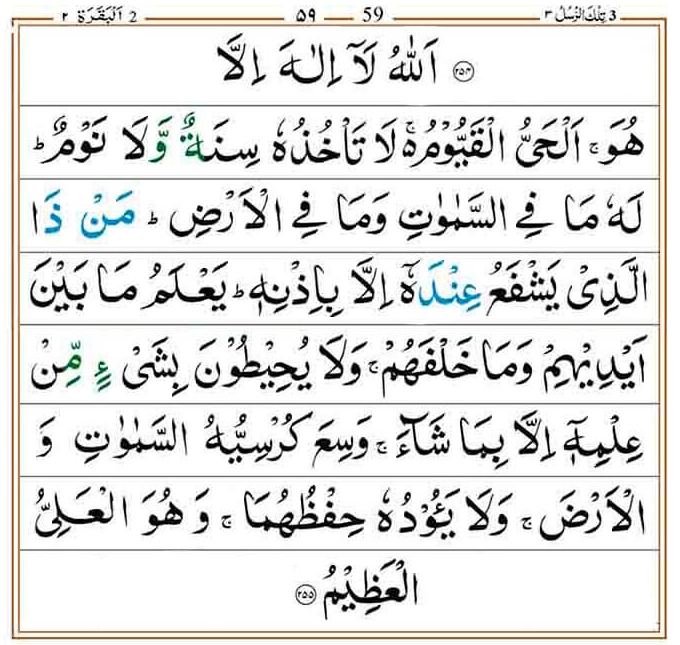 3 تِلْكَ الرُّسُلُ ٣ 59 ٥٩ 2 اَلْبَقَرَة ٢
۝٢٥٤ اَللّٰهُ لَاۤ اِلٰهَ اِلَّا
هُوَ ۚ اَلْحَیُّ الْقَیُّوْمُ ۬ۚ لَا تَاْخُذُهٗ سِنَةٌ وَّلَا نَوْمٌ ؕ
لَهٗ مَا فِی السَّمٰوٰتِ وَمَا فِی الْاَرْضِ ؕ مَنْ ذَا
الَّذِیْ یَشْفَعُ عِنْدَهٗۤ اِلَّا بِاِذْنِهٖ ؕ یَعْلَمُ مَا بَیْنَ
اَیْدِیْهِمْ وَمَا خَلْفَهُمْ ۚ وَلَا یُحِیْطُوْنَ بِشَیْءٍ مِّنْ
عِلْمِهٖۤ اِلَّا بِمَا شَآءَ ۚ وَسِعَ كُرْسِیُّهُ السَّمٰوٰتِ وَ
الْاَرْضَ ۚ وَلَا یَـُٔوْدُهٗ حِفْظُهُمَا ۚ وَ هُوَ الْعَلِیُّ
الْعَظِیْمُ ۝٢٥٥